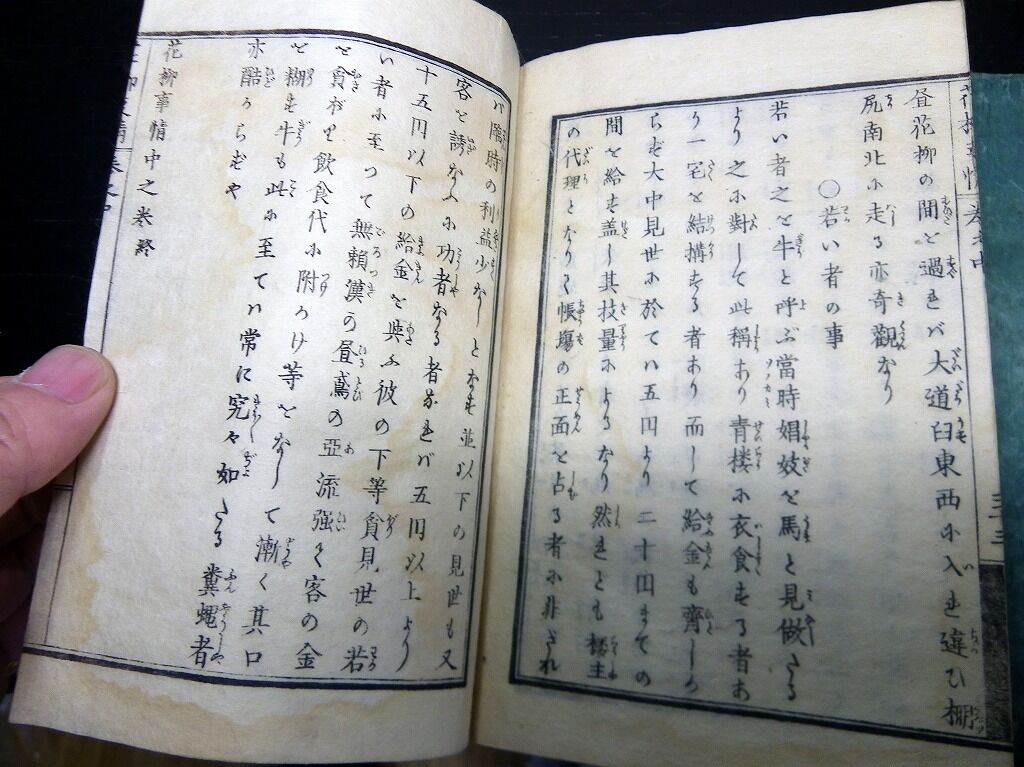 昼花柳の間を過れバ大道臼東西に入れ違ひ棚
尻南北に走る亦奇觀なり
〇若い者の事
若い者之を牛と呼ぶ當時娼妓を馬と見做たる
より之に對して此稱あり青楼に衣食する者あ
り一宅を結構する者あり而して給金も齊しか
らず大中見世に於てハ五円より二十円までの
間を給す盖し其技量によるなり然れとも楼主
の代理となりて帳塲の正面を占る者に非ざれ
バ臨時の利益少なしとなす並以下の見世も又
客を誘なふに功者なる者なれバ五円以上より
十五円以下の給金を與ふ彼の下等貧見世の若
い者に至つて無頼漢の昼鳶の亜流強く客の金
を貪ぼり飲食代に附かけ等をなして漸く其口
を糊す牛も此に至てハ常に究々如たる糞蠅者
亦酷からずや
花柳事情中之巻終
三十三